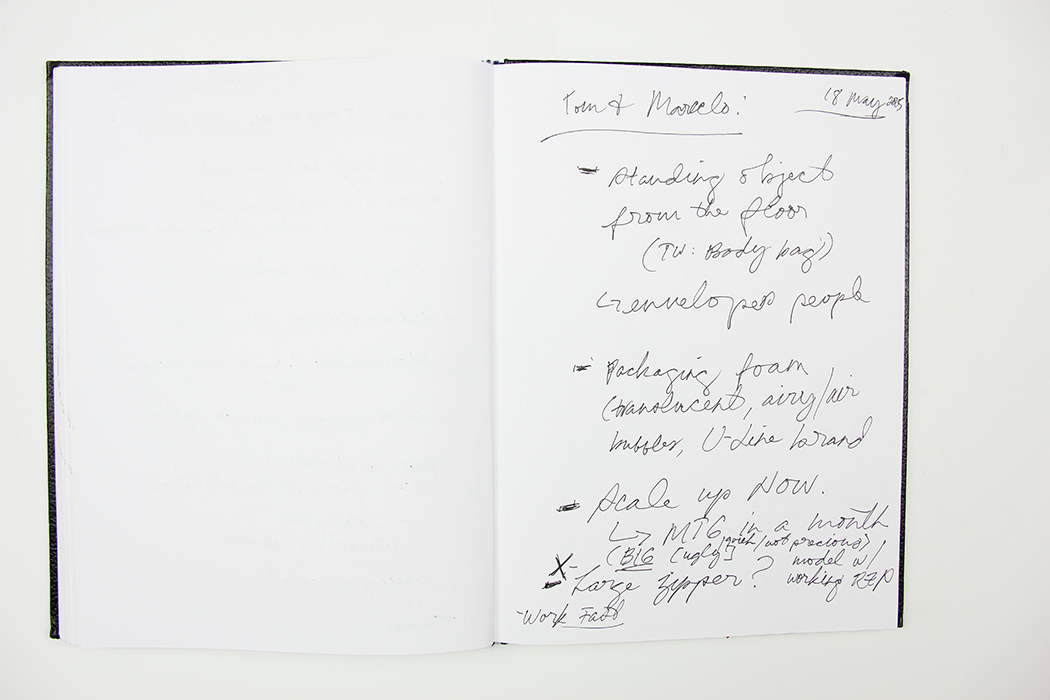 Tom & Marcelo:
18 May 2015
- Standing object
from the floor
(TW: Body bag)
↳ envelopes people
- Packaging foam
(translucent, airy/air
bubbles, U-Line brand
- Scale up NOW.
↳ MTG in a month
(BIG [ugly] quick/not precious)
model w/
X - Large zipper? working
- Work Fast